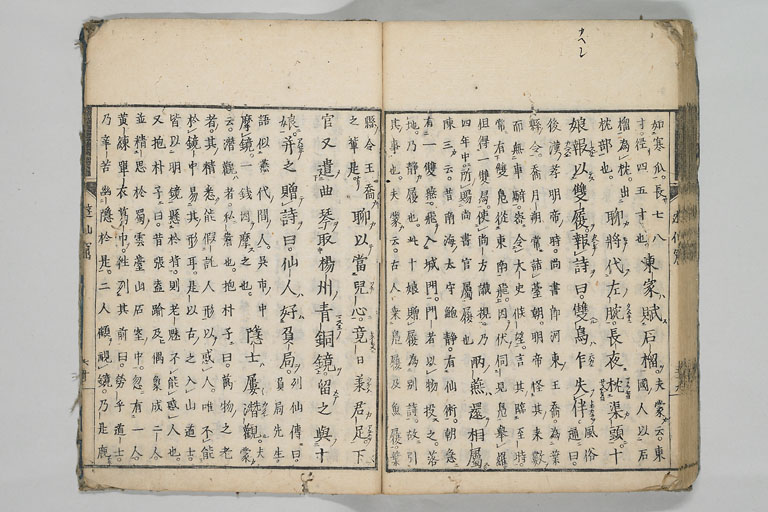 如寒瓜。長七八
寸。徑四五寸也。
東家賦石榴。
夫蒙云。東
國人以石
榴為枕。出
枕部也。
聊將代左腕。長夜枕渠頭。十
娘報以雙履報詩曰。雙鳧乍失伴
遁曰
風俗
後漢孝明帝時尚書郎河東王喬。為葉
縣令。喬月朔常詣臺朝。明帝怪其来數
而無車騎。密令太史候望。言其臨至時。
常有雙鳧従東南飛。因伏伺見鳧。舉羅
但得一雙舄。使尚方識視。乃
四年中。所賜尚書官屬履也
兩燕還相屬
陳三云。昔南海太守鮑靜。有仙術。朝急
有一雙燕飛入城門。門者以物投之。落
地。乃靜履也。此十娘贈履為別詩。故引
其事也。夫蒙云。古人集鳧履及魚履葉
縣令王喬
之輩是。
聊以當兒心。竟日承君足。下
官又遣曲琴取楊州青銅鏡。留之與十
娘。并之贈詩曰。仙人好負局。
列仙傳曰。
負局先生。
語似燕代間人。吳市中
摩鏡。一錢因摩之也。
隱士屢潛觀
夫蒙
云。潛觀者。私察也。抱朴子曰。萬物之老
者。其精悉能假託人形以惑人。唯不能
於鏡中易其形耳。是以古之入山道士。
皆以明鏡懸於背。則老魅不能惑人也。
又抱朴子曰。昔張蓋蹹及偶豪成二人。
並精思於蜀雲臺山石室中。忽有一人。
黄練單衣葛巾。往到其前曰。勞乎道士。
乃辛苦幽隱於是。二人顧視鏡。乃是鹿
遊仙窟